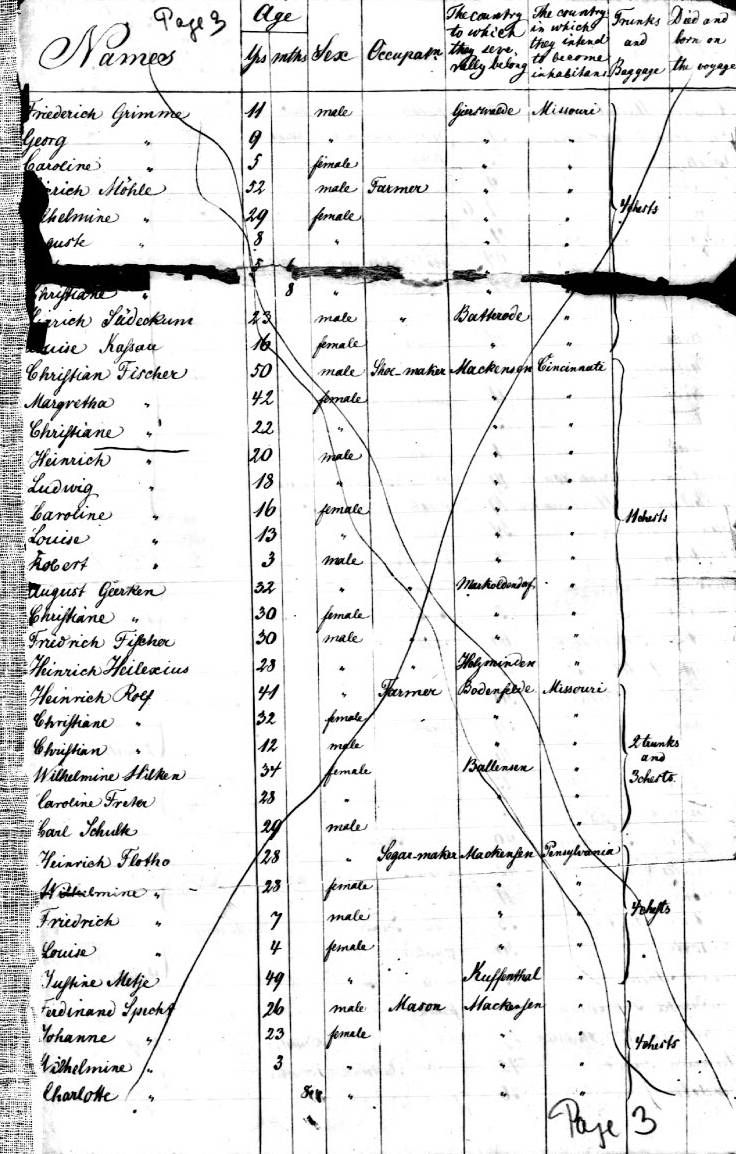 Page 3
Names Age Yrs mths Sex Occupatn. The country to which they severally belong The country in which they intend to become inhabitans Trunks and Baggage Died and born on the voyage
Friederich Grimme 11 male Gierswalde Missouri
Georg " 9 " " "
Caroline " 5 female " "
Möhle 52 male Farmer " "
" 29 female " " 4 chests
" 8 " " "
5 6
Christiane " 8 " " "
Südeckum 23 male " Batterode "
Kassau 16 female " "
Christian Fischer 50 male Shoe-maker Mackensen Cincinnate
Margretha " 42 female " "
Christiane " 22 " " "
Heinrich " 20 male " "
Ludwig " 18 " " "
Caroline " 16 female " " 11 chests
Louise " 13 " " "
Robert " 3 male " "
August Geerken 32 " " Markoldendorf "
Christiane " 30 female " "
Friedrich Fischer 30 male " " "
Heinrich Heilexius 28 " " Holzminden "
Heinrich Rolf 41 " Farmer Bodenfelde Missouri
Christiane " 32 female " "
Christian " 12 male " " 2 trunks and
Wilhelmine Hilken 34 female Ballensen " 3 chests.
Caroline Freter 28 " " "
Carl Schulk 29 male " "
Heinrich Flotho 28 " Segar-maker Mackensen Pensylvania
Wilhelmine " 28 female " "
Friedrich " 7 male " " 4 chests
Louise " 4 female " "
Justine Metje 49 " Kuffenthal "
Ferdinand Specht 26 male Mason Mackensen "
Johanne " 23 female " "
Wilhelmine " 3 " " " 4 chests
Charlotte " " " "
Page 3